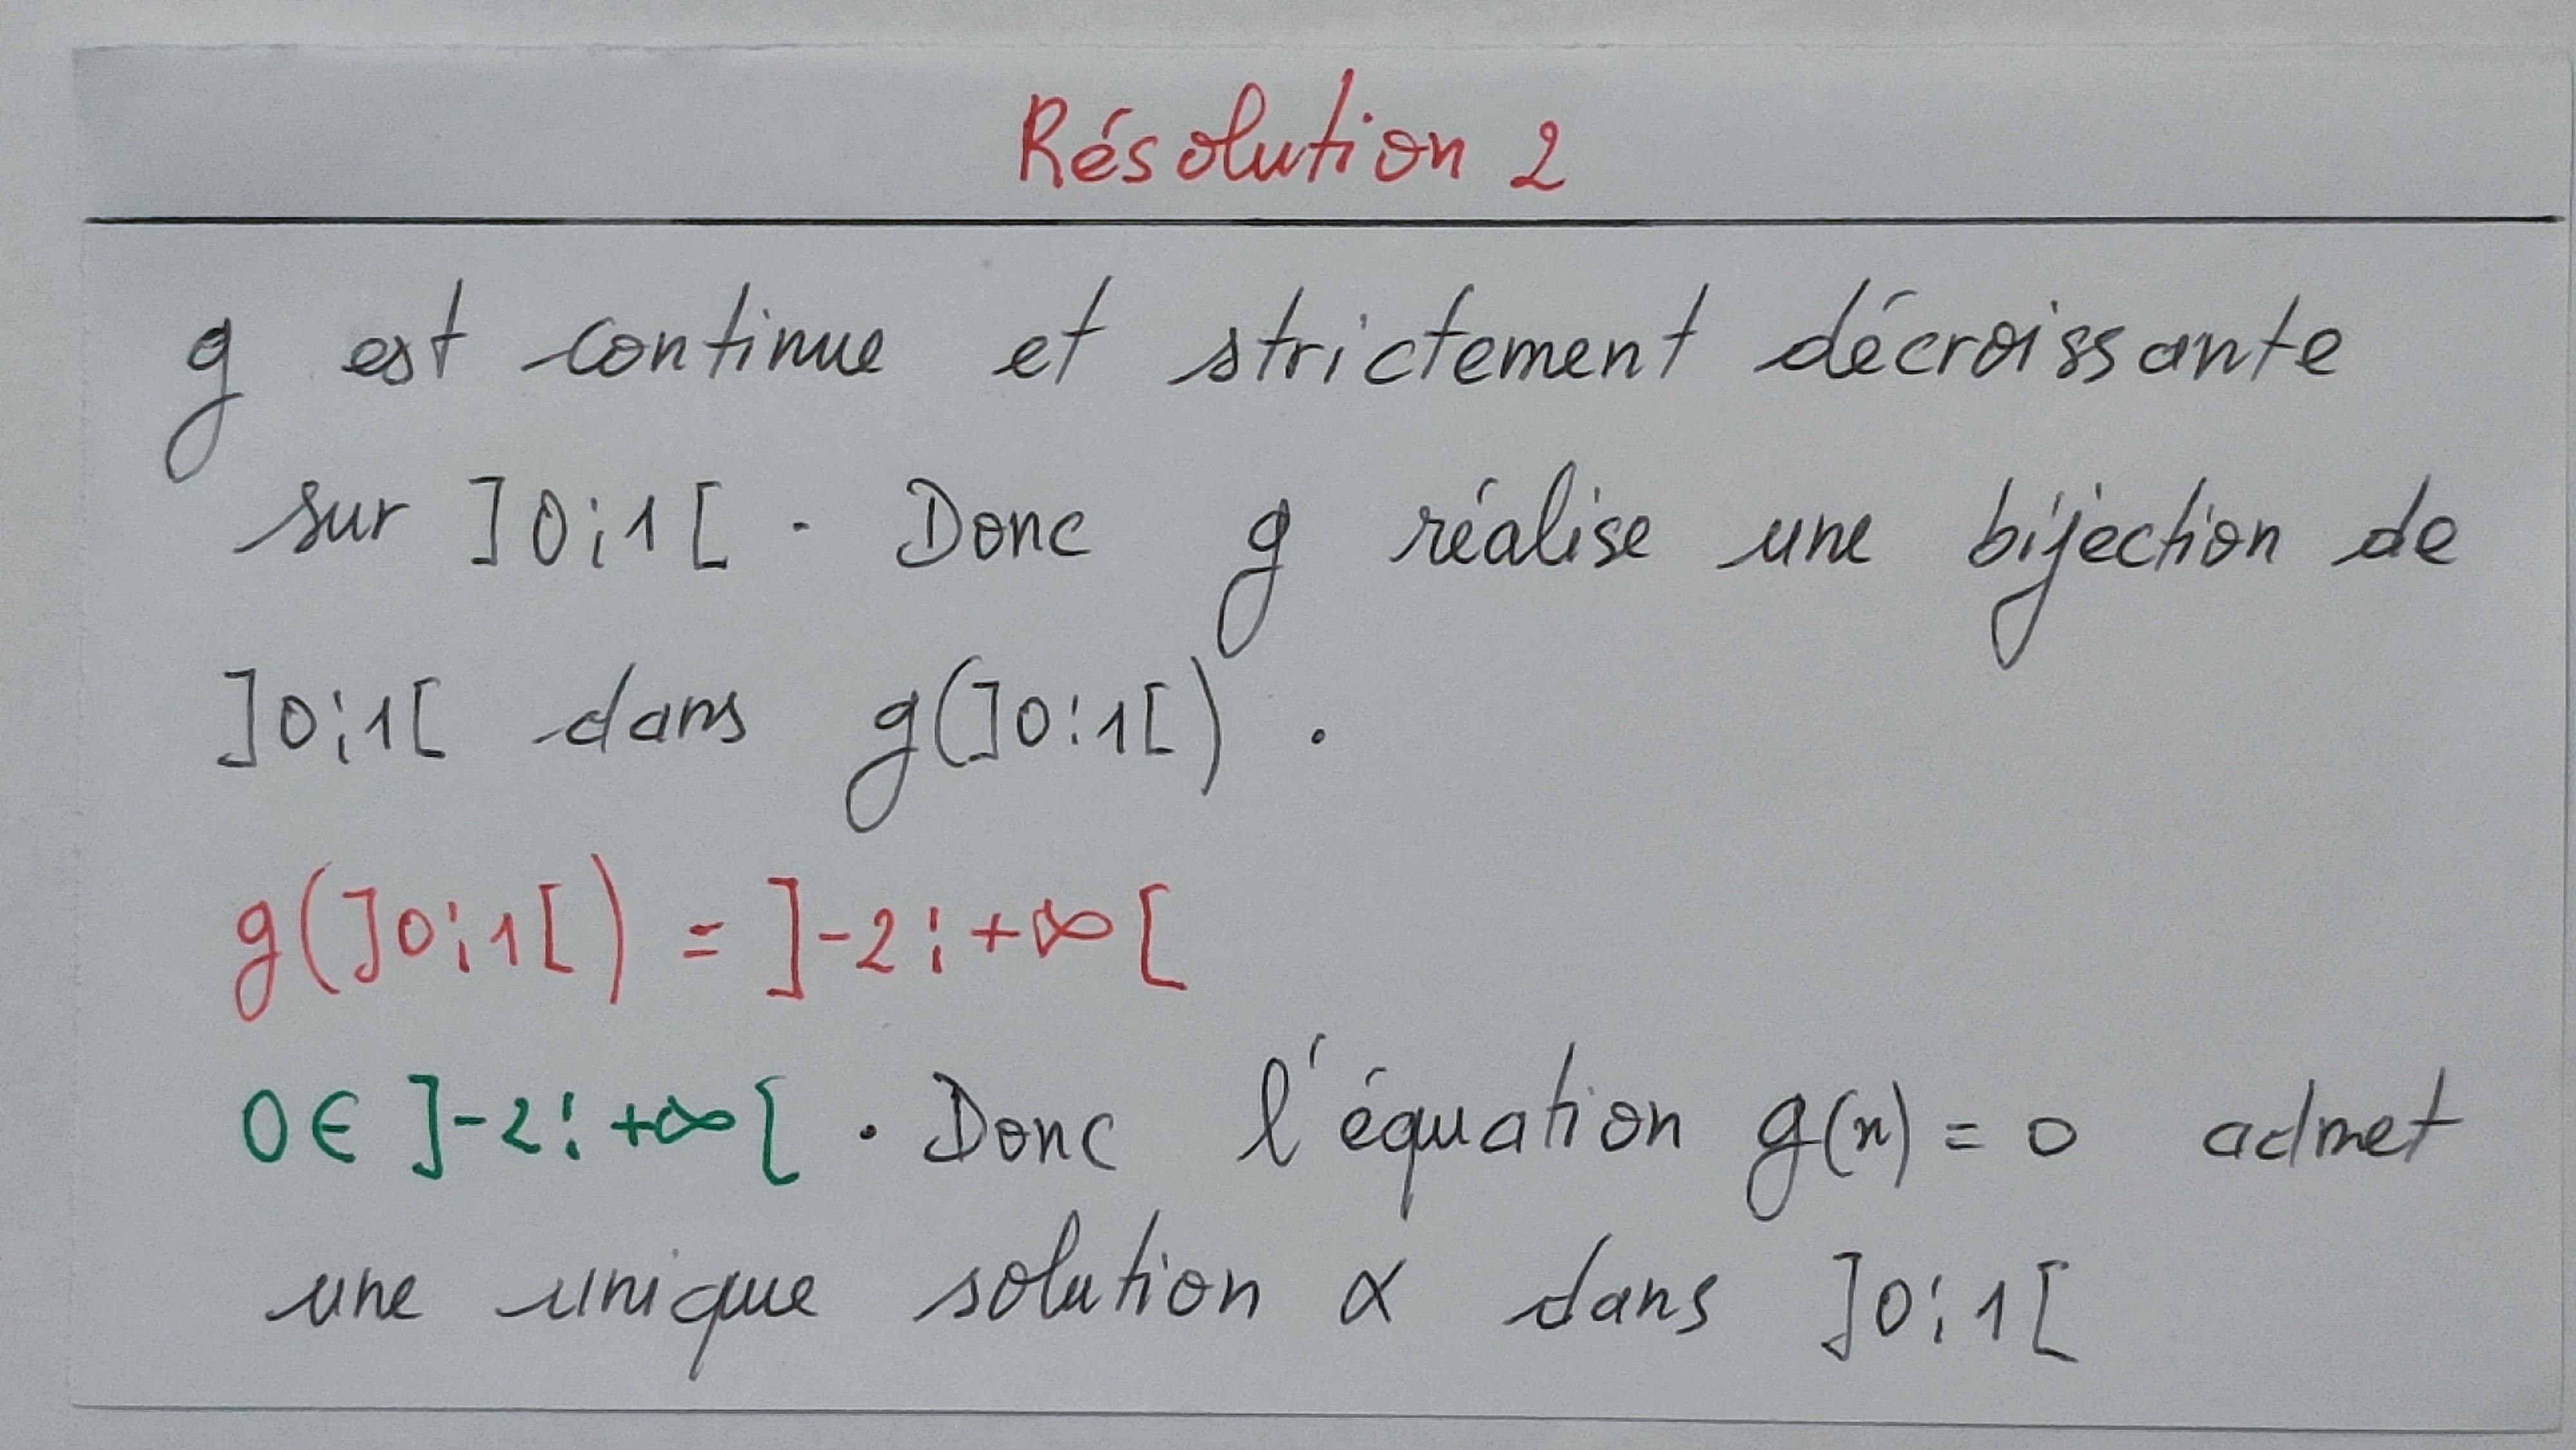 Résolution 2
g est continue et strictement décroissante
sur ]0;1[ . Donc g réalise une bijection de
]0;1[ dans g(]0;1[) .
g(]0;1[) = ]-2;+∞[
0 ∈ ]-2;+∞[ . Donc l'équation g(x) = 0 admet
une unique solution α dans ]0;1[